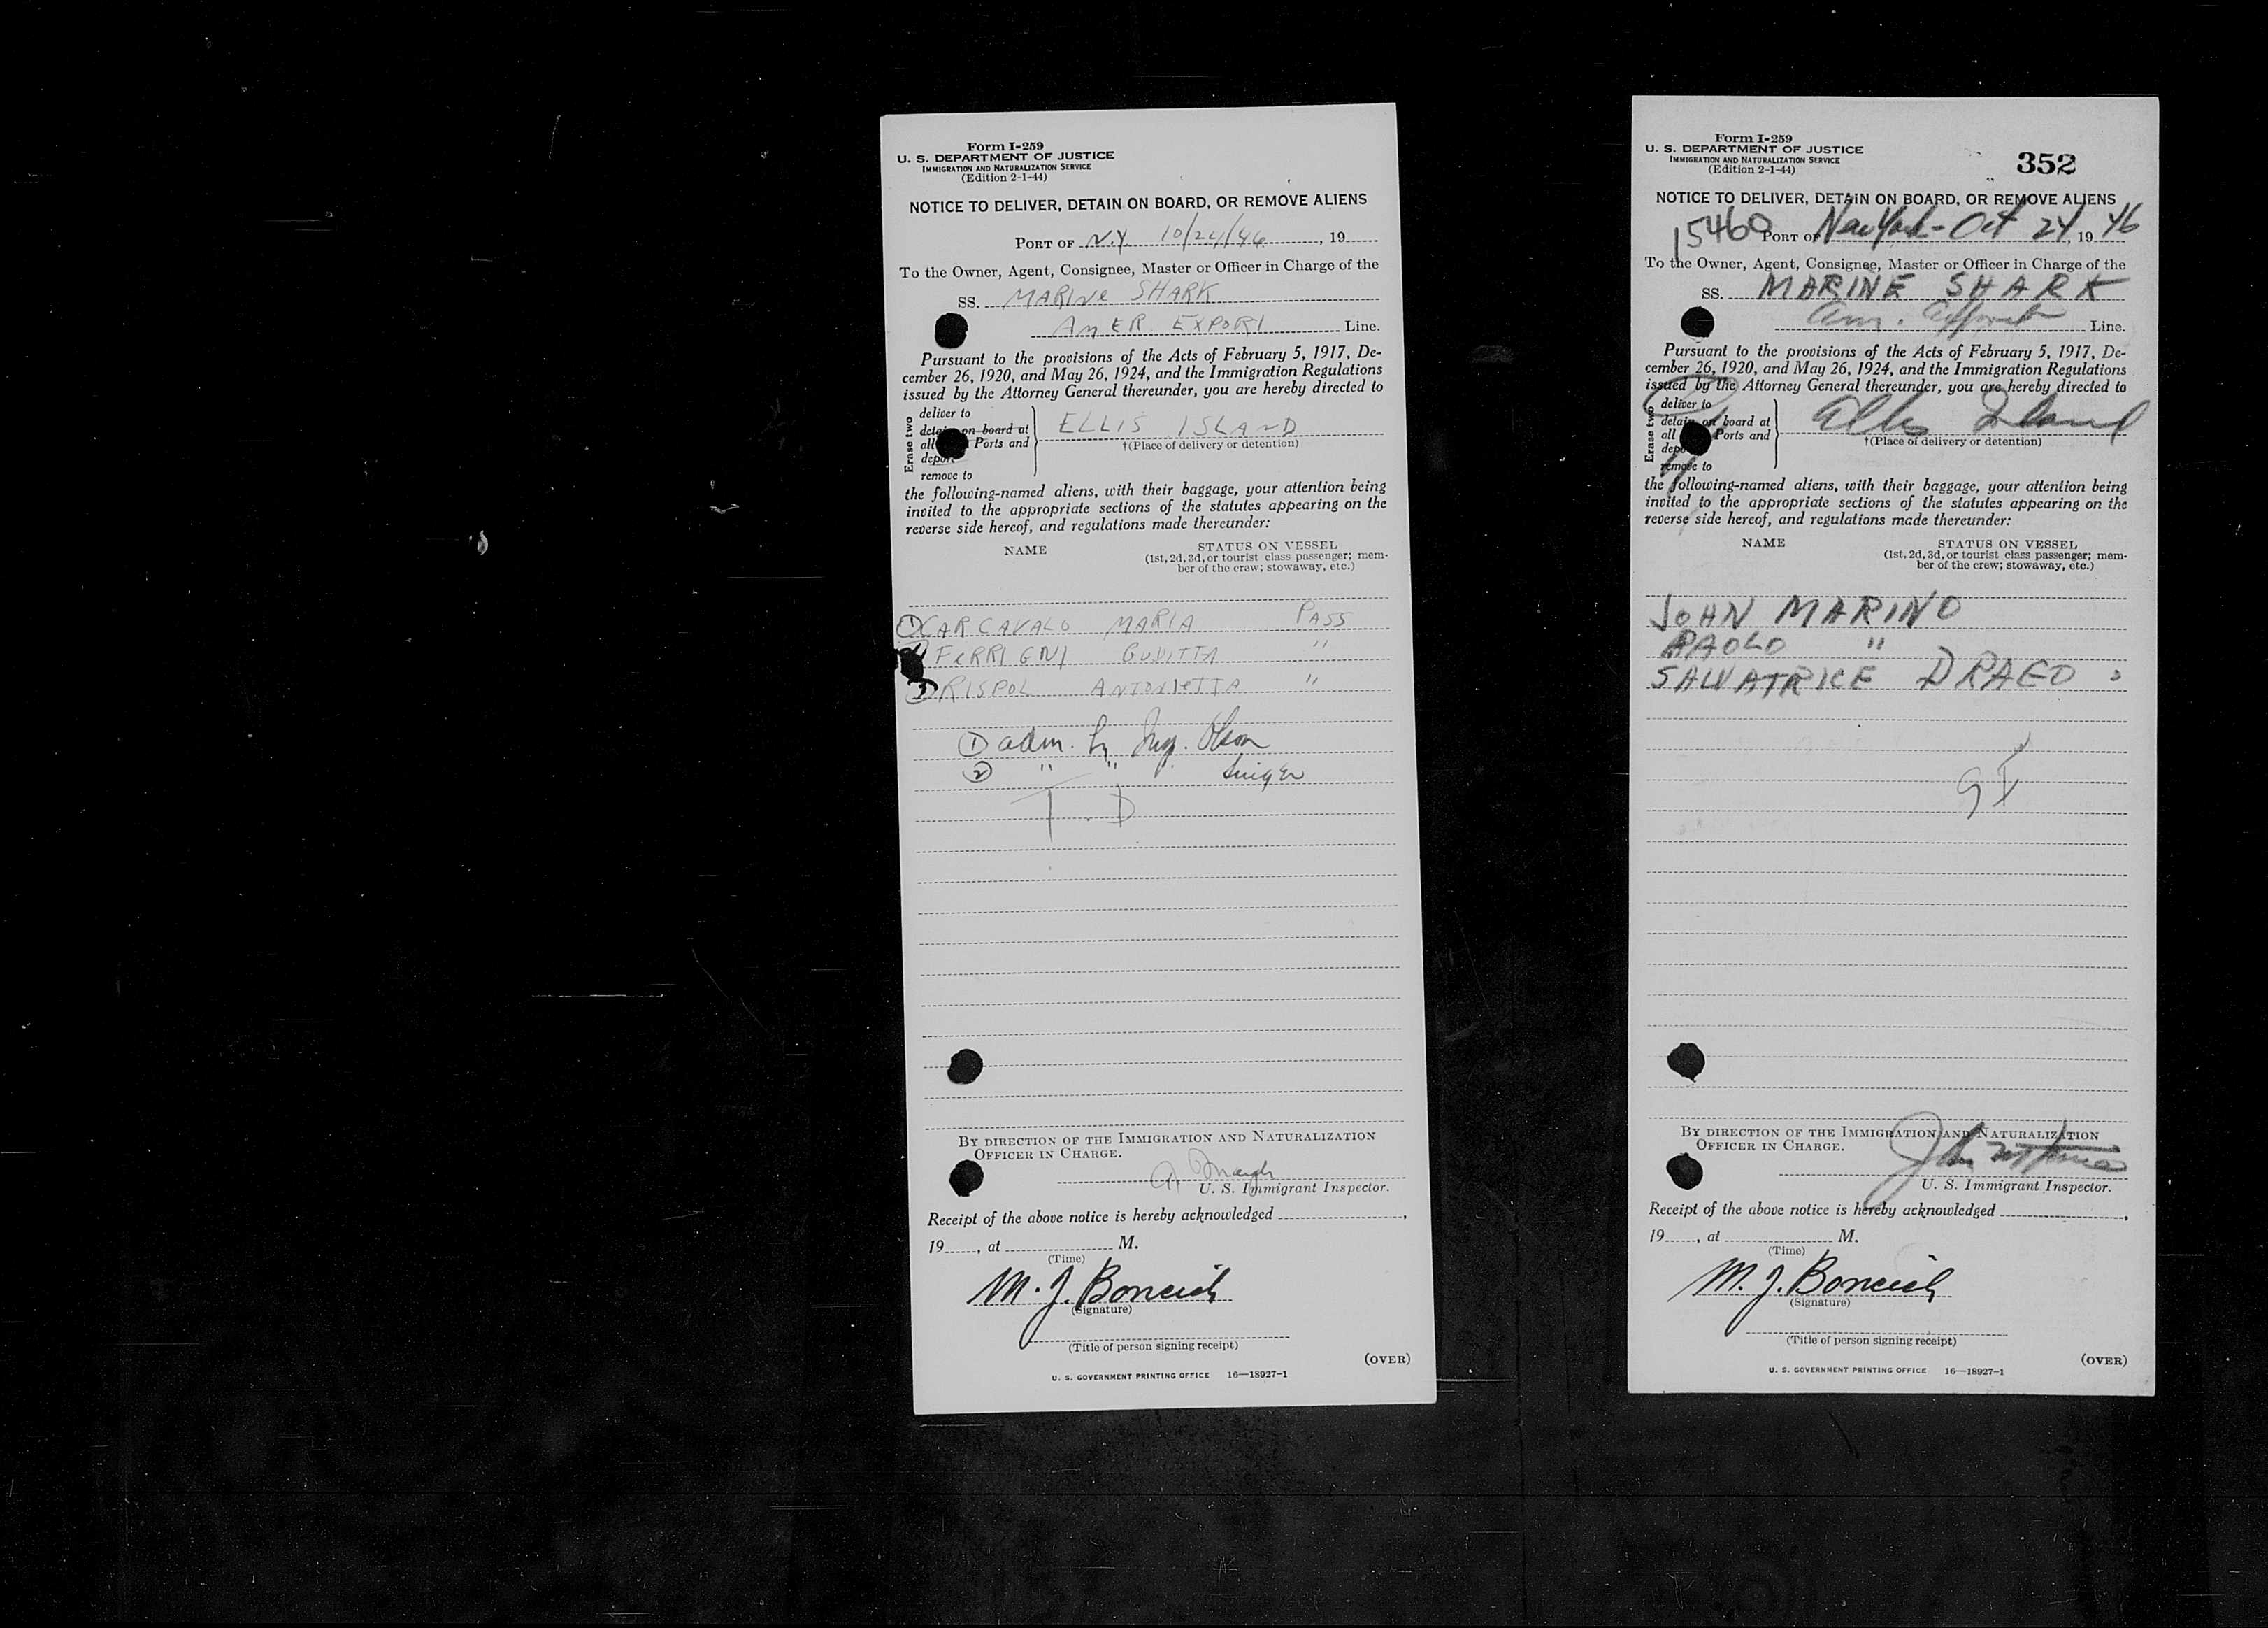 Form I-259
U. S. DEPARTMENT OF JUSTICE
IMMIGRATION AND NATURALIZATION SERVICE
(Edition 2-1-44)
NOTICE TO DELIVER, DETAIN ON BOARD, OR REMOVE ALIENS
PORT OF N.Y. 10/24/46, 19
To the Owner, Agent, Consignee, Master or Officer in Charge of the
SS. MARINE SHARK
AMER EXPORT Line.
Pursuant to the provisions of the Acts of February 5, 1917, De-
cember 26, 1920, and May 26, 1924, and the Immigration Regulations
issued by the Attorney General thereunder, you are hereby directed to
Erase two
deliver to
detain on board at
all Ports and
deport
remove to
ELLIS ISLAND
†(Place of delivery or detention)
the following-named aliens, with their baggage, your attention being
invited to the appropriate sections of the statutes appearing on the
reverse side hereof, and regulations made thereunder:
NAME STATUS ON VESSEL
(1st, 2d, 3d, or tourist class passenger; mem-
ber of the crew; stowaway, etc.)
① CARCAVALO MARIA PASS
FERRIGNI GUDITTA "
③ RISPOL ANTONIETTA "
① adm. by Insp. Olson
② " " Singer
T. D
BY DIRECTION OF THE IMMIGRATION AND NATURALIZATION
OFFICER IN CHARGE.
U. S. Immigrant Inspector.
Receipt of the above notice is hereby acknowledged ,
19 , at M.
(Time)
M. J. Boncich
(Signature)
(Title of person signing receipt)
(OVER)
U. S. GOVERNMENT PRINTING OFFICE 16—18927-1
Form I-259
U. S. DEPARTMENT OF JUSTICE
IMMIGRATION AND NATURALIZATION SERVICE
(Edition 2-1-44)
352
NOTICE TO DELIVER, DETAIN ON BOARD, OR REMOVE ALIENS
15460 PORT OF New York - Oct 24, 1946
To the Owner, Agent, Consignee, Master or Officer in Charge of the
SS. MARINE SHARK
Am. Export Line.
Pursuant to the provisions of the Acts of February 5, 1917, De-
cember 26, 1920, and May 26, 1924, and the Immigration Regulations
issued by the Attorney General thereunder, you are hereby directed to
Erase two
deliver to
detain on board at
all Ports and
deport
remove to
Ellis Island
†(Place of delivery or detention)
the following-named aliens, with their baggage, your attention being
invited to the appropriate sections of the statutes appearing on the
reverse side hereof, and regulations made thereunder:
NAME STATUS ON VESSEL
(1st, 2d, 3d, or tourist class passenger; mem-
ber of the crew; stowaway, etc.)
JOHN MARINO
PAOLO "
SALVATRICE DRAGO
BY DIRECTION OF THE IMMIGRATION AND NATURALIZATION
OFFICER IN CHARGE.
U. S. Immigrant Inspector.
Receipt of the above notice is hereby acknowledged ,
19 , at M.
(Time)
M. J. Boncich
(Signature)
(Title of person signing receipt)
(OVER)
U. S. GOVERNMENT PRINTING OFFICE 16—18927-1